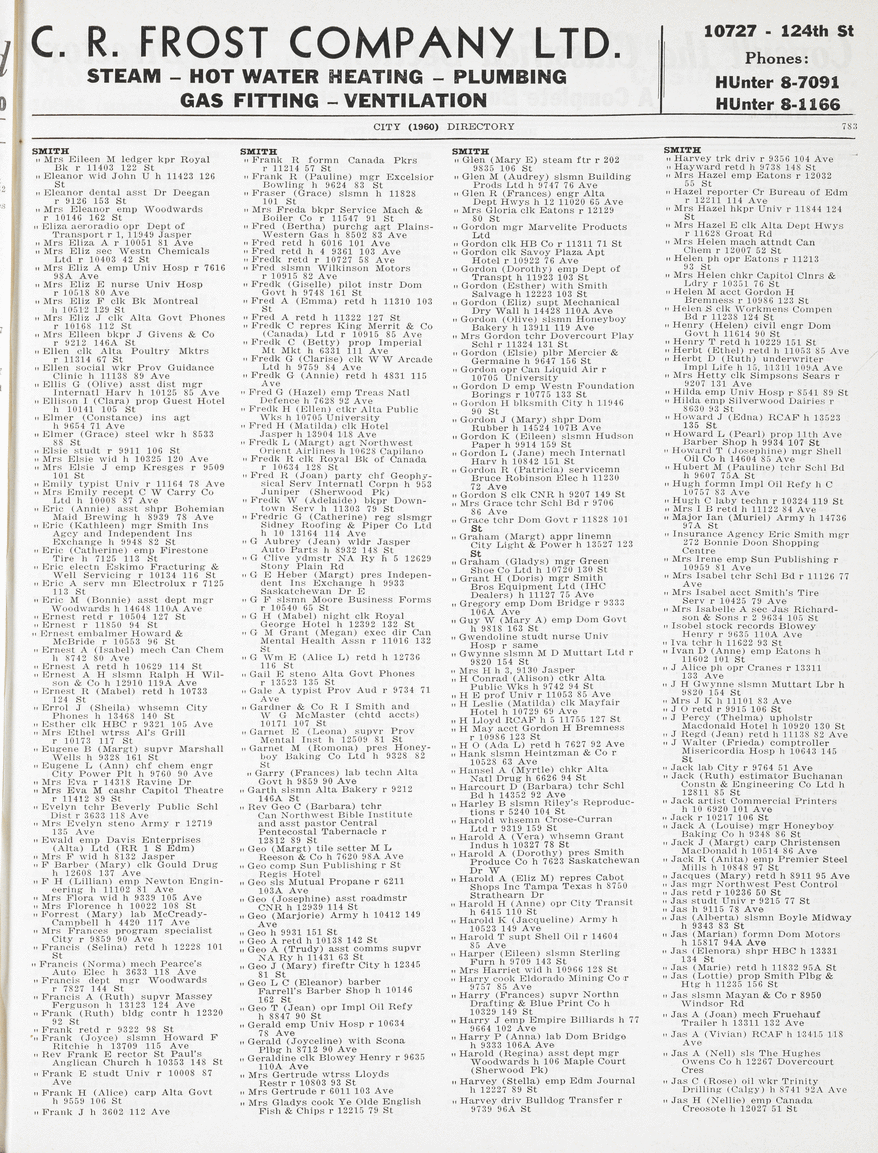 C. R. FROST COMPANY LTD.
STEAM – HOT WATER HEATING – PLUMBING
GAS FITTING – VENTILATION
10727 - 124th St
Phones:
HUnter 8-7091
HUnter 8-1166
CITY (1960) DIRECTORY
783
SMITH
" Mrs Eileen M ledger kpr Royal
Bk r 11403 122 St
" Eleanor wid John U h 11423 126
St
" Eleanor dental asst Dr Deegan
r 9126 153 St
" Mrs Eleanor emp Woodwards
r 10146 162 St
" Eliza aeroradio opr Dept of
Transport r 1, 11949 Jasper
" Mrs Eliza A r 10051 81 Ave
" Mrs Eliz sec Westn Chemicals
Ltd r 10403 42 St
" Mrs Eliz A emp Univ Hosp r 7616
98A Ave
" Mrs Eliz E nurse Univ Hosp
r 10518 80 Ave
" Mrs Eliz F clk Bk Montreal
h 10512 129 St
" Mrs Eliz J clk Alta Govt Phones
r 10168 112 St
" Mrs Elleen bkpr J Givens & Co
r 9212 146A St
" Ellen clk Alta Poultry Mktrs
r 11314 67 St
" Ellen social wkr Prov Guidance
Clinic h 11138 89 Ave
" Ellis G (Olive) asst dist mgr
Internatl Harv h 10125 85 Ave
" Ellison I (Clara) prop Guest Hotel
h 10141 105 St
" Elmer (Constance) ins agt
h 9654 71 Ave
" Elmer (Grace) steel wkr h 8533
88 St
" Elsie studt r 9911 106 St
" Mrs Elsie wid h 10325 120 Ave
" Mrs Elsie J emp Kresges r 9509
101 St
" Emily typist Univ r 11164 78 Ave
" Mrs Emily recept C W Carry Co
Ltd h 10008 87 Ave
" Eric (Annie) asst shpr Bohemian
Maid Brewing h 8939 78 Ave
" Eric (Kathleen) mgr Smith Ins
Agcy and Independent Ins
Exchange h 9948 82 St
" Eric (Catherine) emp Firestone
Tire h 7125 113 St
" Eric electn Eskimo Fracturing &
Well Servicing r 10134 116 St
" Eric A serv mn Electrolux r 7125
113 St
" Eric M (Bonnie) asst dept mgr
Woodwards h 14648 110A Ave
" Ernest retd r 10504 127 St
" Ernest r 11850 94 St
" Ernest embalmer Howard &
McBride r 10553 96 St
" Ernest A (Isabel) mech Can Chem
h 8742 80 Ave
" Ernest A retd h 10629 114 St
" Ernest A H slsmn Ralph H Wil-
son & Co h 12910 119A Ave
" Ernest E (Mabel) retd h 10733
124 St
" Errol J (Sheila) whsemn City
Phones h 13468 140 St
" Esther clk HBC r 9321 105 Ave
" Mrs Ethel wtrss Al's Grill
r 10173 117 St
" Eugene B (Margt) supvr Marshall
Wells h 9328 161 St
" Eugene L (Ann) chf chem engr
City Power Plt h 9760 90 Ave
" Mrs Eva r 14318 Ravine Dr
" Mrs Eva M cashr Capitol Theatre
r 11412 89 St
" Evelyn tchr Beverly Public Schl
Dist r 3633 118 Ave
" Mrs Evelyn steno Army r 12719
135 Ave
" Ewald emp Davis Enterprises
(Alta) Ltd (RR 1 S Edm)
" Mrs F wid h 8132 Jasper
" F Barber (Mary) clk Gould Drug
h 12608 137 Ave
" F H (Lillian) emp Newton Engin-
eering h 11102 81 Ave
" Mrs Flora wid h 9339 105 Ave
" Mrs Florence h 10022 108 St
" Forrest (Mary) lab McCready-
Campbell h 4420 117 Ave
" Mrs Frances program specialist
City r 9859 90 Ave
" Francis (Selina) retd h 12228 101
St
" Francis (Norma) mech Pearce's
Auto Elec h 3633 118 Ave
" Francis dept mgr Woodwards
r 7827 144 St
" Francis A (Ruth) supvr Massey
Ferguson h 13123 124 Ave
" Frank (Ruth) bldg contr h 12320
92 St
" Frank retd r 9322 98 St
" Frank (Joyce) slsmn Howard F
Ritchie h 13709 115 Ave
" Rev Frank E rector St Paul's
Anglican Church h 10353 148 St
" Frank E studt Univ r 10008 87
Ave
" Frank H (Alice) carp Alta Govt
h 9559 106 St
" Frank J h 3602 112 Ave
SMITH
" Frank R formn Canada Pkrs
r 11214 57 St
" Frank R (Pauline) mgr Excelsior
Bowling h 9624 83 St
" Fraser (Grace) slsmn h 11828
101 St
" Mrs Freda bkpr Service Mach &
Boiler Co r 11547 91 St
" Fred (Bertha) purchg agt Plains-
Western Gas h 8502 83 Ave
" Fred retd h 6016 101 Ave
" Fred retd h 4 9261 103 Ave
" Fredk retd r 10727 58 Ave
" Fred slsmn Wilkinson Motors
r 10915 82 Ave
" Fredk (Giselle) pilot instr Dom
Govt h 9748 161 St
" Fred A (Emma) retd h 11310 103
St
" Fred A retd h 11322 127 St
" Fredk C repres King Merrit & Co
(Canada) Ltd r 10915 85 Ave
" Fredk C (Betty) prop Imperial
Mt Mkt h 6331 111 Ave
" Fredk G (Clarise) clk W W Arcade
Ltd h 9759 84 Ave
" Fredk G (Annie) retd h 4831 115
Ave
" Fred G (Hazel) emp Treas Natl
Defence h 7628 92 Ave
" Fredk H (Ellen) ctkr Alta Public
Wks h 10705 University
" Fred H (Matilda) clk Hotel
Jasper h 13904 118 Ave
" Fredk L (Margt) agt Northwest
Orient Airlines h 10628 Capilano
" Fredk R clk Royal Bk of Canada
r 10634 128 St
" Fred R (Joan) party chf Geophy-
sical Serv Internatl Corpn h 953
Juniper (Sherwood Pk)
" Fredk W (Adelaide) bkpr Down-
town Serv h 11303 79 St
" Fredric G (Catherine) reg slsmgr
Sidney Roofing & Piper Co Ltd
h 10 13164 114 Ave
" G Aubrey (Jean) wldr Jasper
Auto Parts h 8932 148 St
" G Clive ydmstr NA Ry h 5 12629
Stony Plain Rd
" G E Heber (Margt) pres Indepen-
dent Ins Exchange h 9033
Saskatchewan Dr E
" G F slsmn Moore Business Forms
r 10540 65 St
" G H (Mabel) night clk Royal
George Hotel h 12392 132 St
" G M Grant (Megan) exec dir Can
Mental Health Assn r 11016 132
St
" G Wm E (Alice L) retd h 12736
116 St
" Gail E steno Alta Govt Phones
r 13523 135 St
" Gale A typist Prov Aud r 9734 71
Ave
" Gardner & Co R I Smith and
W G McMaster (chtd accts)
10171 107 St
" Garnet E (Leona) supvr Prov
Mental Inst h 12509 81 St
" Garnet M (Romona) pres Honey-
boy Baking Co Ltd h 9328 82
St
" Garry (Frances) lab techn Alta
Govt h 9859 90 Ave
" Garth slsmn Alta Bakery r 9212
146A St
" Rev Geo C (Barbara) tchr
Can Northwest Bible Institute
and asst pastor Central
Pentecostal Tabernacle r
12812 89 St
" Geo (Margt) tile setter M L
Reeson & Co h 7620 98A Ave
" Geo comp Sun Publishing r St
Regis Hotel
" Geo sls Mutual Propane r 6211
103A Ave
" Geo (Josephine) asst roadmstr
CNR h 12939 114 St
" Geo (Marjorie) Army h 10412 149
Ave
" Geo h 9931 151 St
" Geo A retd h 10138 142 St
" Geo A (Trudy) asst comms supvr
NA Ry h 11431 63 St
" Geo J (Mary) fireftr City h 12345
81 St
" Geo L C (Eleanor) barber
Farrell's Barber Shop h 10146
162 St
" Geo T (Jean) opr Impl Oil Refy
h 8847 90 St
" Gerald emp Univ Hosp r 10634
78 Ave
" Gerald (Joyceline) with Scona
Plbg h 8712 90 Ave
" Geraldine clk Blowey Henry r 9635
110A Ave
" Mrs Gertrude wtrss Lloyds
Restr r 10803 93 St
" Mrs Gertrude r 6011 103 Ave
" Mrs Gladys cook Ye Olde English
Fish & Chips r 12215 79 St
SMITH
" Glen (Mary E) steam ftr r 202
9835 106 St
" Glen M (Audrey) slsmn Building
Prods Ltd h 9747 76 Ave
" Glen R (Frances) engr Alta
Dept Hwys h 12 11020 65 Ave
" Mrs Gloria clk Eatons r 12129
80 St
" Gordon mgr Marvelite Products
Ltd
" Gordon clk HB Co r 11311 71 St
" Gordon clk Savoy Plaza Apt
Hotel r 10922 76 Ave
" Gordon (Dorothy) emp Dept of
Transpt h 11923 103 St
" Gordon (Esther) with Smith
Salvage h 12223 103 St
" Gordon (Eliz) supt Mechanical
Dry Wall h 14428 110A Ave
" Gordon (Olive) slsmn Honeyboy
Bakery h 13911 119 Ave
" Mrs Gordon tchr Dovercourt Play
Schl r 11324 131 St
" Gordon (Elsie) plbr Mercier &
Germaine h 9647 156 St
" Gordon opr Can Liquid Air r
10705 University
" Gordon D emp Westn Foundation
Borings r 10775 133 St
" Gordon H blksmith City h 11946
90 St
" Gordon J (Mary) shpr Dom
Rubber h 14524 107B Ave
" Gordon K (Eileen) slsmn Hudson
Paper h 9914 159 St
" Gordon L (Jane) mech Internatl
Harv h 10842 151 St
" Gordon R (Patricia) servicemn
Bruce Robinson Elec h 11230
72 Ave
" Gordon S clk CNR h 9207 149 St
" Mrs Grace tchr Schl Bd r 9706
86 Ave
" Grace tchr Dom Govt r 11828 101
St
" Graham (Margt) appr linemn
City Light & Power h 13527 123
St
" Graham (Gladys) mgr Green
Shoe Co Ltd h 10720 130 St
" Grant H (Doris) mgr Smith
Bros Equipment Ltd (IHC
Dealers) h 11127 75 Ave
" Gregory emp Dom Bridge r 9333
106A Ave
" Guy W (Mary A) emp Dom Govt
h 9818 163 St
" Gwendoline studt nurse Univ
Hosp r same
" Gwynne slsmn M D Muttart Ltd r
9820 154 St
" Mrs H h 3, 9130 Jasper
" H Conrad (Alison) ctkr Alta
Public Wks h 9742 94 St
" H E prof Univ r 11053 85 Ave
" H Leslie (Matilda) clk Mayfair
Hotel h 10729 69 Ave
" H Lloyd RCAF h 5 11755 127 St
" H May acct Gordon H Bremness
r 10986 123 St
" H O (Ada L) retd h 7627 92 Ave
" Hank slsmn Heintzman & Co r
10528 63 Ave
" Hansel A (Myrtle) chkr Alta
Natl Drug h 6626 94 St
" Harcourt D (Barbara) tchr Schl
Bd h 14352 92 Ave
" Harley B slsmn Riley's Reproduc-
tions r 5240 104 St
" Harold whsemn Crose-Curran
Ltd r 9319 159 St
" Harold A (Vera) whsemn Grant
Indus h 10327 78 St
" Harold A (Dorothy) pres Smith
Produce Co h 7623 Saskatchewan
Dr W
" Harold A (Eliz M) repres Cabot
Shops Inc Tampa Texas h 8750
Strathearn Dr
" Harold H (Anne) opr City Transit
h 6415 110 St
" Harold K (Jacqueline) Army h
10523 149 Ave
" Harold T supt Shell Oil r 14604
85 Ave
" Harper (Eileen) slsmn Sterling
Furn h 9709 143 St
" Mrs Harriet wid h 10966 128 St
" Harry cook Eldorado Mining Co r
9757 85 Ave
" Harry (Frances) supvr Northn
Drafting & Blue Print Co h
10329 149 St
" Harry J emp Empire Billiards h 77
9664 102 Ave
" Harry P (Anna) lab Dom Bridge
h 9333 106A Ave
" Harold (Regina) asst dept mgr
Woodwards h 106 Maple Court
(Sherwood Pk)
" Harvey (Stella) emp Edm Journal
h 12227 89 St
" Harvey driv Bulldog Transfer r
9739 96A St
SMITH
" Harvey trk driv r 9356 104 Ave
" Hayward retd h 9738 148 St
" Mrs Hazel emp Eatons r 12032
55 St
" Hazel reporter Cr Bureau of Edm
r 12211 114 Ave
" Mrs Hazel hkpr Univ r 11844 124
St
" Mrs Hazel E clk Alta Dept Hwys
r 11628 Groat Rd
" Mrs Helen mach attndt Can
Chem r 12007 52 St
" Helen ph opr Eatons r 11213
93 St
" Mrs Helen chkr Capitol Clnrs &
Ldry r 10351 76 St
" Helen M acct Gordon H
Bremness r 10986 123 St
" Helen S clk Workmens Compen
Bd r 11238 124 St
" Henry (Helen) civil engr Dom
Govt h 11614 90 St
" Henry T retd h 10229 151 St
" Herbt (Ethel) retd h 11053 85 Ave
" Herbt D (Ruth) underwriter
Impl Life h 15, 11311 109A Ave
" Mrs Hetty clk Simpsons Sears r
9207 131 Ave
" Hilda emp Univ Hosp r 8541 89 St
" Hilda emp Silverwood Dairies r
8630 93 St
" Howard J (Edna) RCAF h 13523
135 St
" Howard L (Pearl) prop 11th Ave
Barber Shop h 9934 107 St
" Howard T (Josephine) mgr Shell
Oil Co h 14604 85 Ave
" Hubert M (Pauline) tchr Schl Bd
h 9607 75A St
" Hugh formn Impl Oil Refy h C
10757 83 Ave
" Hugh C laby techn r 10324 119 St
" Mrs I B retd h 11122 84 Ave
" Major Ian (Muriel) Army h 14736
97A St
" Insurance Agency Eric Smith mgr
272 Bonnie Doon Shopping
Centre
" Mrs Irene emp Sun Publishing r
10959 81 Ave
" Mrs Isabel tchr Schl Bd r 11126 77
Ave
" Mrs Isabel acct Smith's Tire
Serv r 10425 79 Ave
" Mrs Isabelle A sec Jas Richard-
son & Sons r 2 9634 105 St
" Isobel stock records Blowey
Henry r 9635 110A Ave
" Iva tchr h 11622 93 St
" Ivan D (Anne) emp Eatons h
11602 101 St
" J Alice ph opr Cranes r 13311
133 Ave
" J H Gwynne slsmn Muttart Lbr h
9820 154 St
" Mrs J K h 11101 83 Ave
" J O retd r 9915 106 St
" J Percy (Thelma) upholstr
Macdonald Hotel h 10920 130 St
" J Regd (Jean) retd h 11138 82 Ave
" J Walter (Frieda) comptroller
Misericordia Hosp h 10643 145
St
" Jack lab City r 9764 51 Ave
" Jack (Ruth) estimator Buchanan
Constn & Engineering Co Ltd h
12811 85 St
" Jack artist Commercial Printers
h 10 6920 101 Ave
" Jack r 10217 106 St
" Jack A (Louise) mgr Honeyboy
Baking Co h 9348 86 St
" Jack J (Margt) carp Christensen
& MacDonald h 10514 86 Ave
" Jack R (Anita) emp Premier Steel
Mills h 10848 97 St
" Jacques (Mary) retd h 8911 95 Ave
" Jas mgr Northwest Pest Control
" Jas retd r 10236 50 St
" Jas studt Univ r 9215 77 St
" Jas h 9115 78 Ave
" Jas (Alberta) slsmn Boyle Midway
h 9343 83 St
" Jas (Marian) formn Dom Motors
h 15817 94A Ave
" Jas (Elenora) shpr HBC h 13331
134 St
" Jas (Marie) retd h 11832 95A St
" Jas (Lottie) prop Smith Plbg &
Htg h 11235 156 St
" Jas slsmn Mayan & Co r 8950
Windsor Rd
" Jas A (Joan) mech Fruehauf
Trailer h 13311 132 Ave
" Jas A (Vivian) RCAF h 13415 118
Ave
" Jas A (Nell) sls The Hughes
Owens Co h 12267 Dovercourt
Cres
" Jas C (Rose) oil wkr Trinity
Drilling (Calgy) h 8741 92A Ave
" Jas H (Nellie) emp Canada
Creosote h 12027 51 St